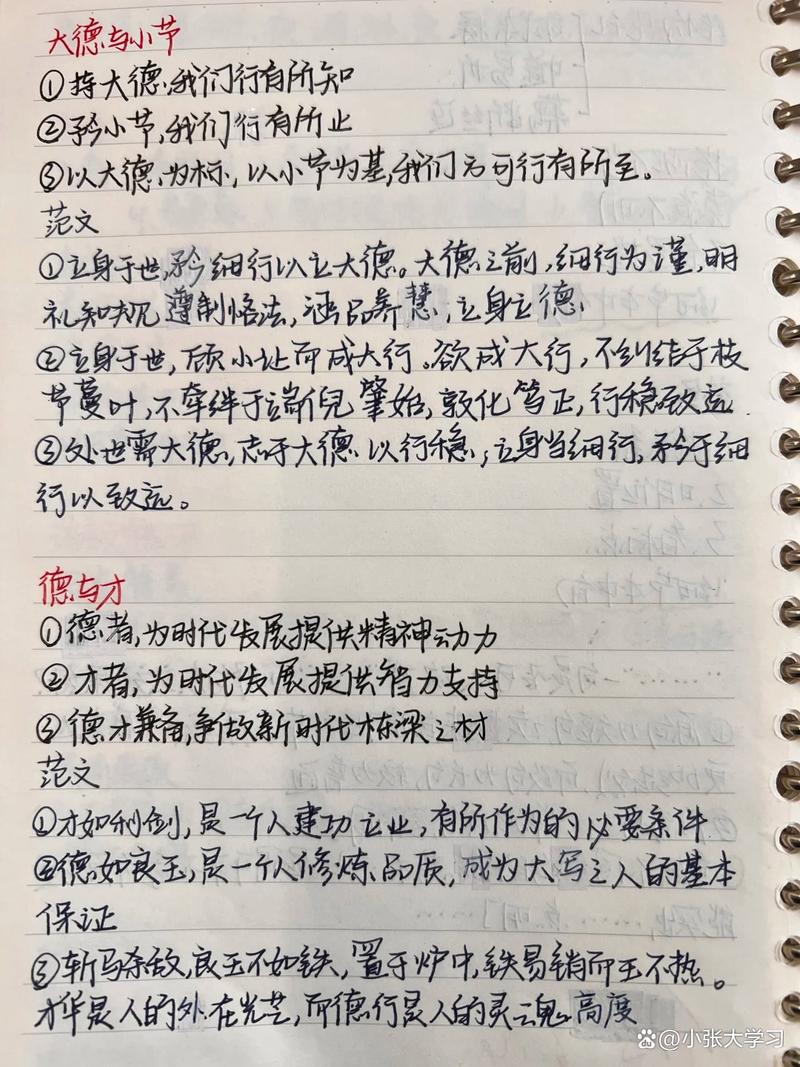 大德与小节
①持大德,我们行有所知
②矜小节,我们行有所止
③以大德为标,以小节为基,我们方可行有所至。
范文
①立身于世,矜细行以立大德。大德之前,细行为谨,明
礼知规 遵制恪法,涵品养慧,立身立德
②立身于世,顾小让而成大行。欲成大行,不纠结于枝
节蔓叶,不牵绊于端倪肇始,敦化笃正,行稳致远
③处世需大德,志于大德以行稳;立身当细行,矜于细
行以致远。
德与才
①德者,为时代发展提供精神动力
②才者,为时代发展提供智力支持
③德才兼备,争做新时代栋梁之材
范文
①才如利剑,是一个人建功立业,有所作为的必要条件
②德如良玉,是一个人修炼品质,成为大写之人的基本
保证
③斩马杀敌,良玉不如铁,置于炉中,铁易销而玉不热。
才华是人的外在光芒,而德行是人的灵魂高度
@小张大学习